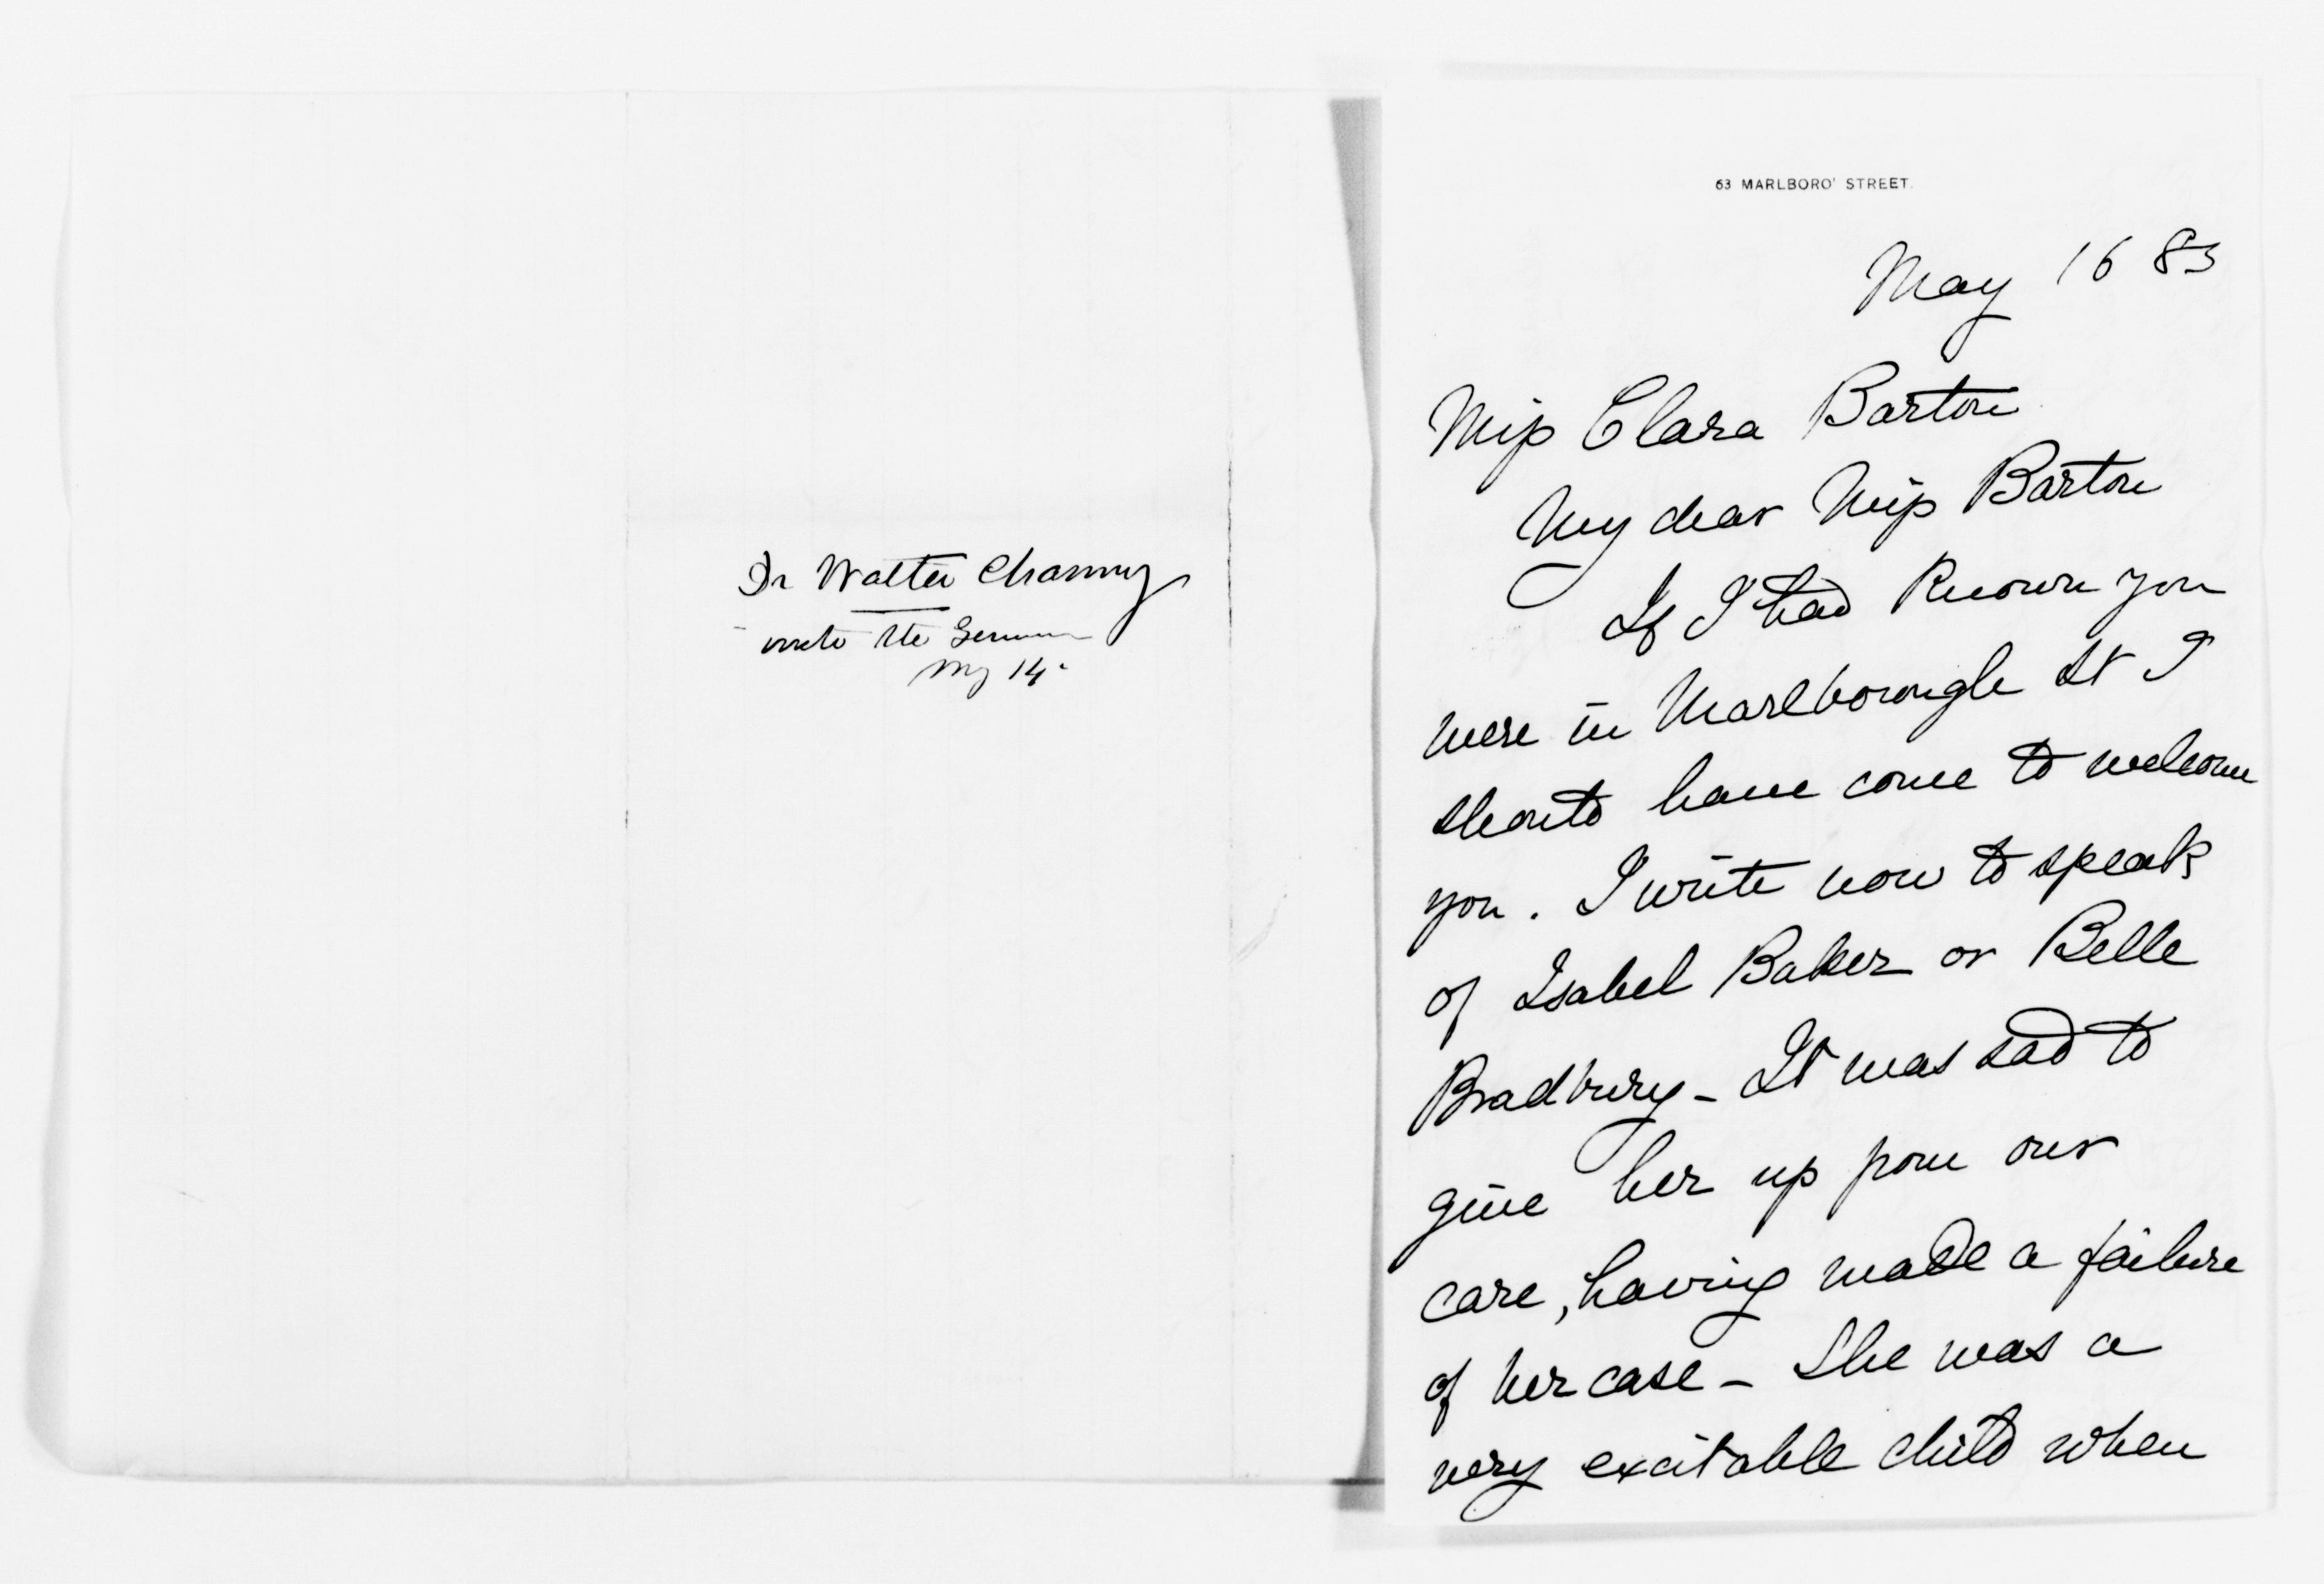 Dr Walter Channing
wrote the
My 14
63 MARLBORO' STREET.
May 16 83
Miss Clara Barton
My dear Miss Barton
If I had known you
were in Marlborough St I
should have come to welcome
you. I write now to speak
of Isabel Baker or Belle
Bradbury - It was sad to
give her up from our
care, having made a failure
of her case - She was a
very excitable child when